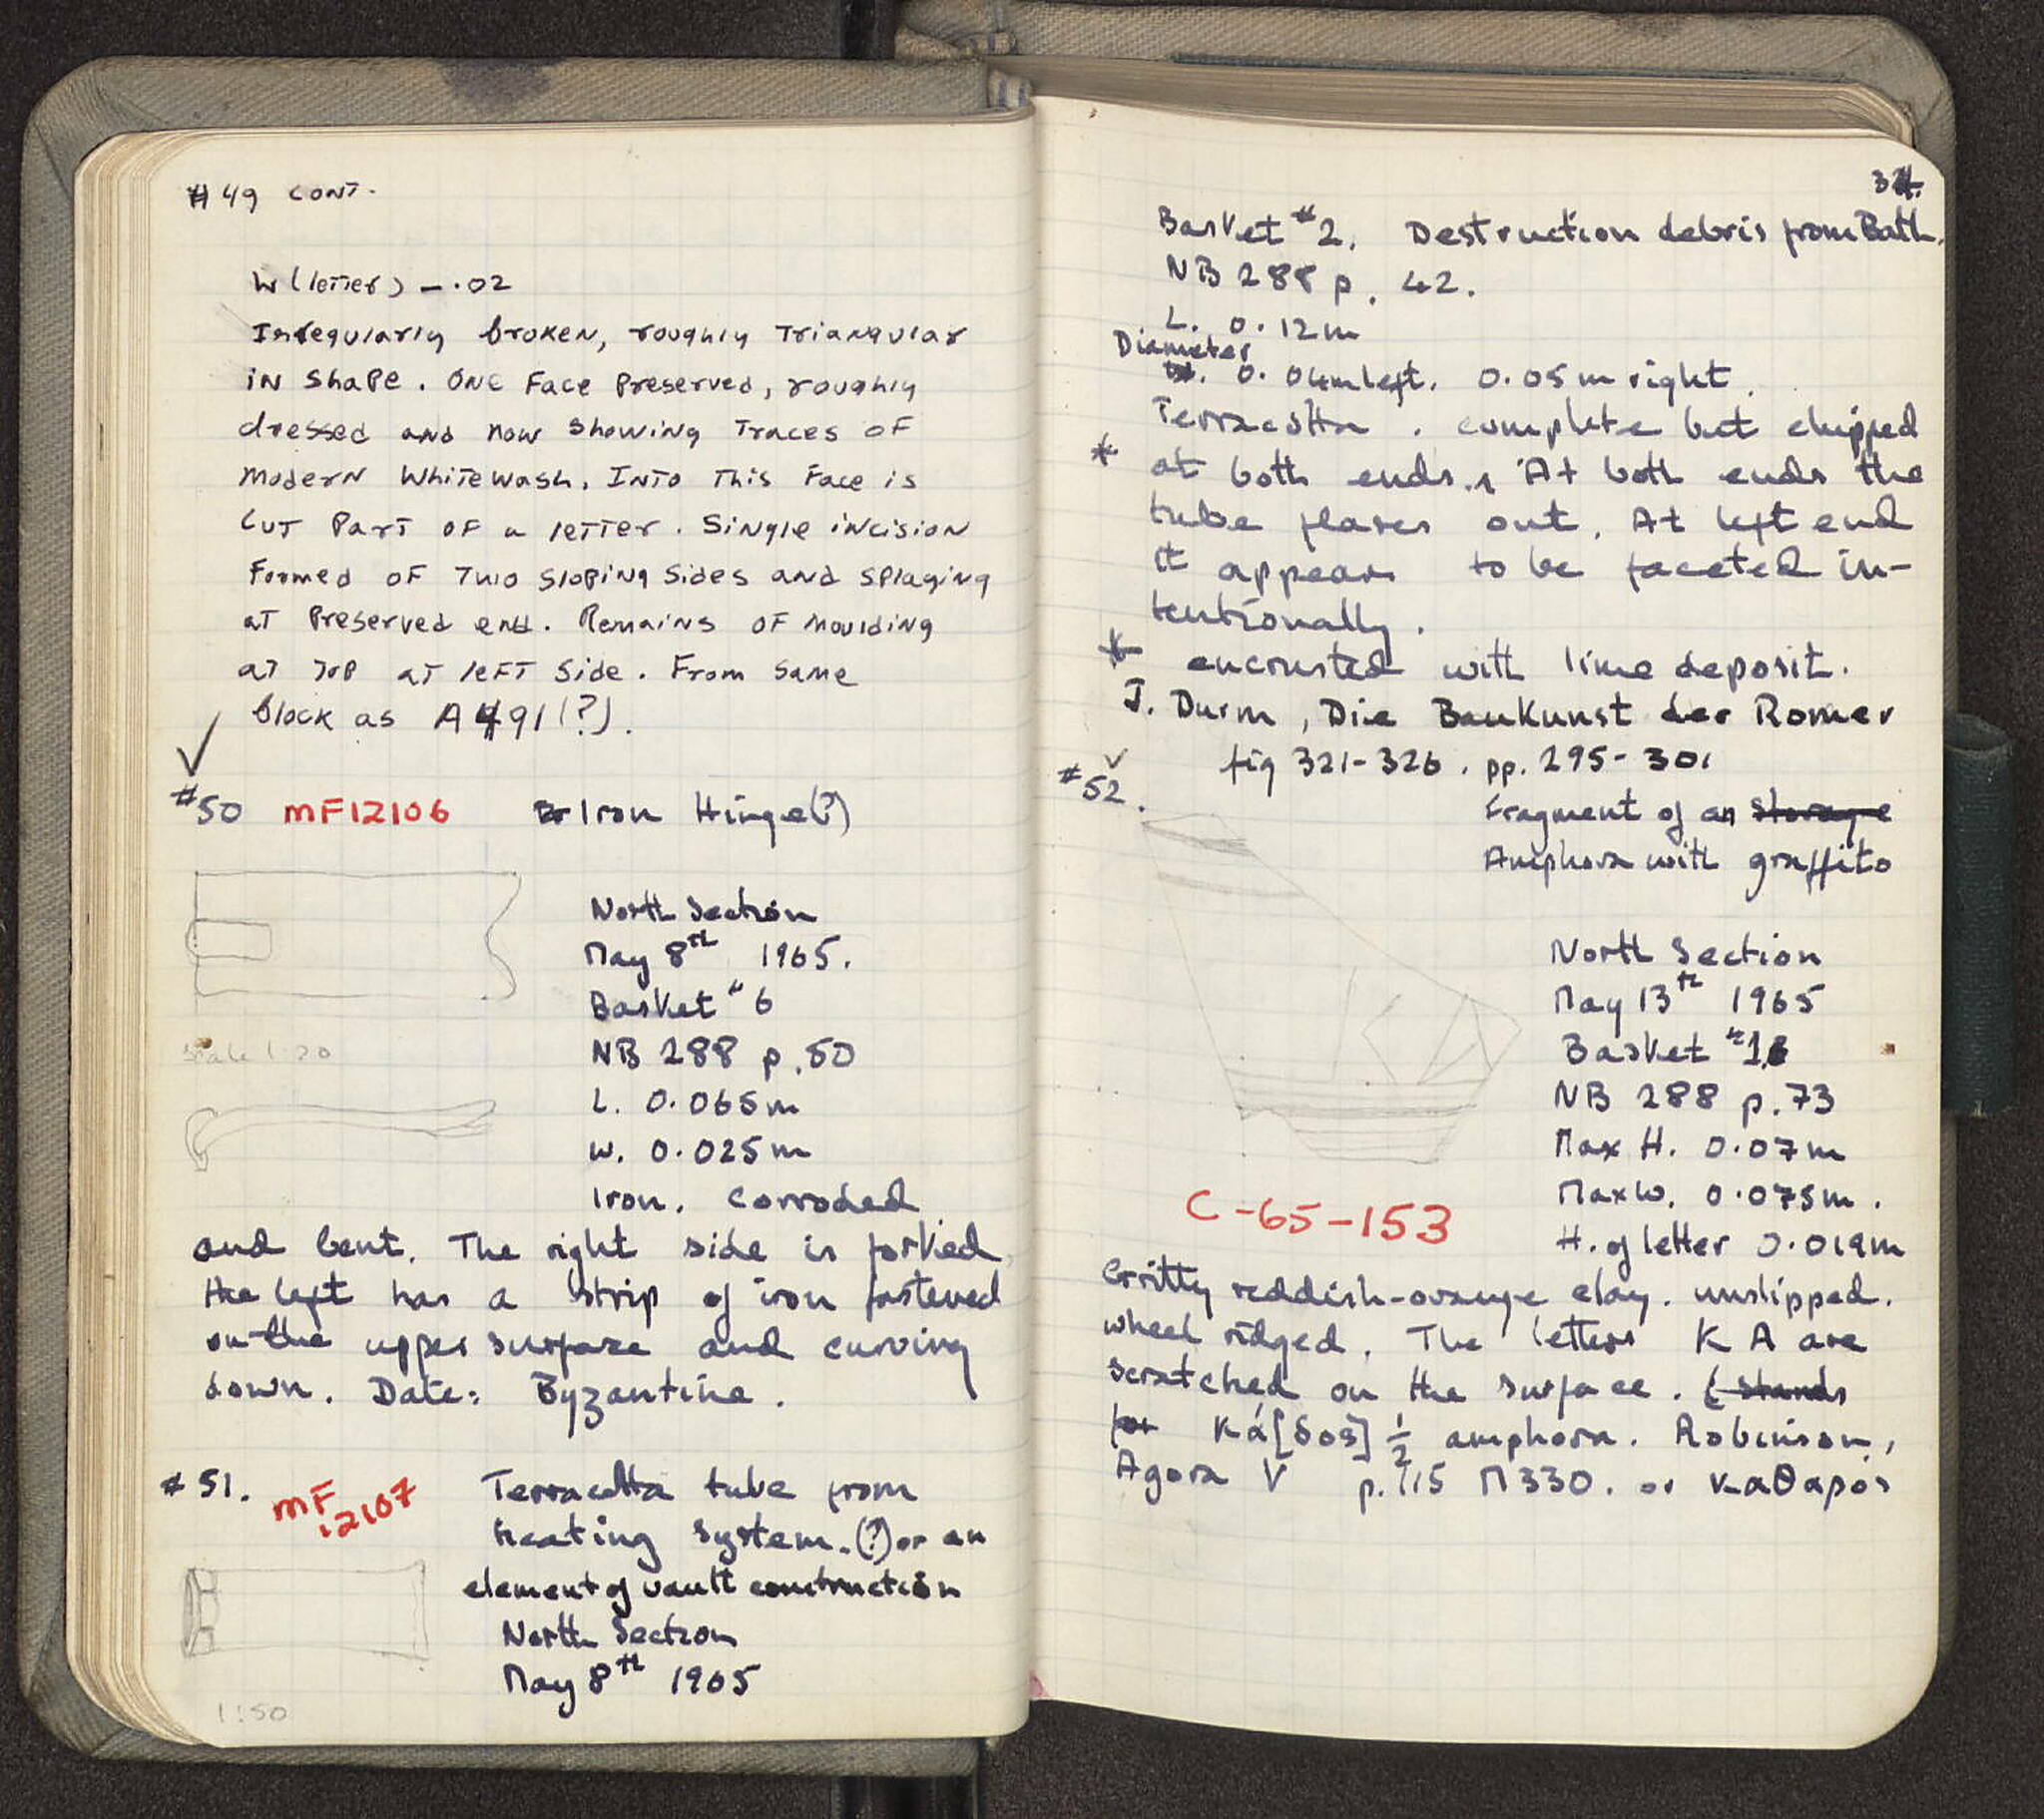 #49 CONT.
W (letter) – .02
Irregularly broken, roughly triangular
in shape. One face preserved, roughly
dressed and now showing traces of
modern whitewash. Into this face is
cut part of a letter. Single incision
formed of two sloping sides and splaying
at preserved end. Remains of moulding
at top at left side. From same
block as A 491(?).
✓
#50 MF12106 Iron Hinge(?)
North Section
May 8th 1965.
Basket #6
NB 288 p. 50
Scale 1:20
L. 0.065m
W. 0.025m
Iron. Corroded
and bent. The right side is forked
the left has a strip of iron fastened
on the upper surface and curving
down. Date: Byzantine.
#51. MF 12107 Terracotta tube from
heating system.(?) or an
element of vault construction
North Section
May 8th 1965
1:50
Basket #2. Destruction debris from Bath.
NB 288 p. 42.
L. 0.12m
Diameter
0.04m left. 0.05m right.
Terracotta. complete but chipped
* at both ends. At both ends the
tube flares out. At left end
it appears to be faceted in-
tentionally.
* encrusted with lime deposit.
J. Durm, Die Baukunst der Romer
fig 321-326. pp. 295-301
✓
#52.
Fragment of an storage
Amphora with graffito
North Section
May 13th 1965
Basket
NB 288 p. 73
Max H. 0.07m
Max W. 0.075m.
C-65-153
H. of letter 0.019m
Gritty reddish-orange clay. unslipped.
wheel ridged. The letters K A are
scratched on the surface. (stands
for κά[δος] ½ amphora. Robinson,
Agora V p. 115 M330. or καθαρός